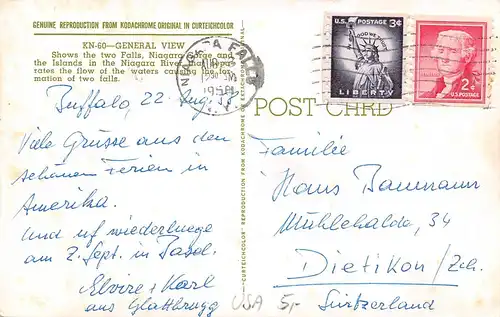 GENUINE REPRODUCTION FROM KODACHROME ORIGINAL IN CURTEICHCOLOR
KN-60—GENERAL VIEW
Shows the two Falls, Niagara Gorge and
the Islands in the Niagara River that sepa-
rates the flow of the waters causing the for-
mation of two falls.
Buffalo, 22. Aug.
Viele Grüsse aus den
schönen Ferien in
Amerika.
Und uf wiederluege
am 2. Sept. in Basel.
Elvire + Karl
aus Glattbrugg
USA 5,-
NIAGARA FALLS
AUG
POST CARD
"CURTEICHCOLOR" REPRODUCTION FROM KODACHROME ORIGINAL
U.S. POSTAGE 3¢
IN GOD WE TRUST
LIBERTY
2¢
U.S. POSTAGE
Familie
Hans Baumann
Mühlehalde, 34
Dietikon/Zch.
Switzerland